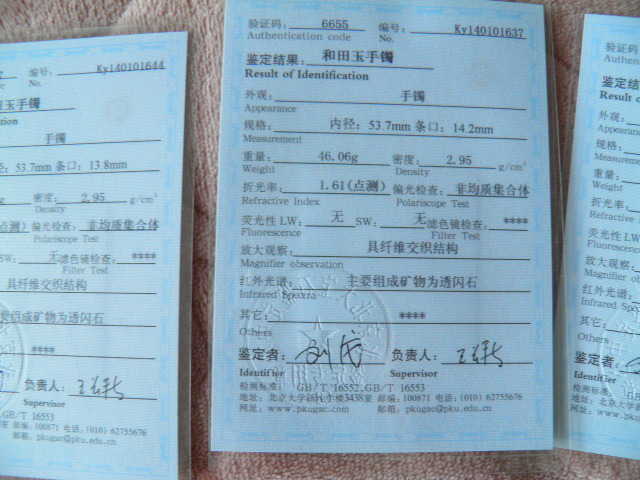 编号: Ky140101644
No.
玉手镯
手镯
53.7mm 条口: 13.8mm
密度: 2.95 g/cm³
Density
(点测) 偏光检查: 非均质集合体
Polariscope Test
SW: 无 滤色镜检查: ****
Filter Test
具纤维交织结构
要组成矿物为透闪石
****
负责人:
Supervisor
GB/T 16553
邮编: 100871 电话: (010) 62755676
邮箱: pkugac@pku.edu.cn
验证码: 6655 编号: Ky140101637
Authentication code No.
鉴定结果: 和田玉手镯
Result of Identification
外观: 手镯
Appearance
规格: 内径: 53.7mm 条口: 14.2mm
Measurement
重量: 46.06g 密度: 2.95 g/cm³
Weight Density
折光率: 1.61(点测) 偏光检查: 非均质集合体
Refractive Index Polariscope Test
荧光性 LW: 无 SW: 无 滤色镜检查: ****
Fluorescence Filter Test
放大观察: 具纤维交织结构
Magnifier observation
红外光谱: 主要组成矿物为透闪石
Infrared Spectra
其它: ****
Others
鉴定者: 负责人:
Identifier Supervisor
检测标准: GB/T 16552, GB/T 16553
地址: 北京大学 3438室 邮编: 100871 电话: (010) 62755676
网址: www.pkugac.com 邮箱: pkugac@pku.edu.cn
验证码
Authentic
鉴定结
Result o
外观:
Appearanc
规格:
Measurem
重量:
Weight
折光率
Refractive
荧光性 L
Fluorescence
放大观察
Magnifier o
红外光谱
Infrared Sp
其它:
Others
鉴定者:
Identifier
检测标准: GB
地址: 北京大
网址: www.p